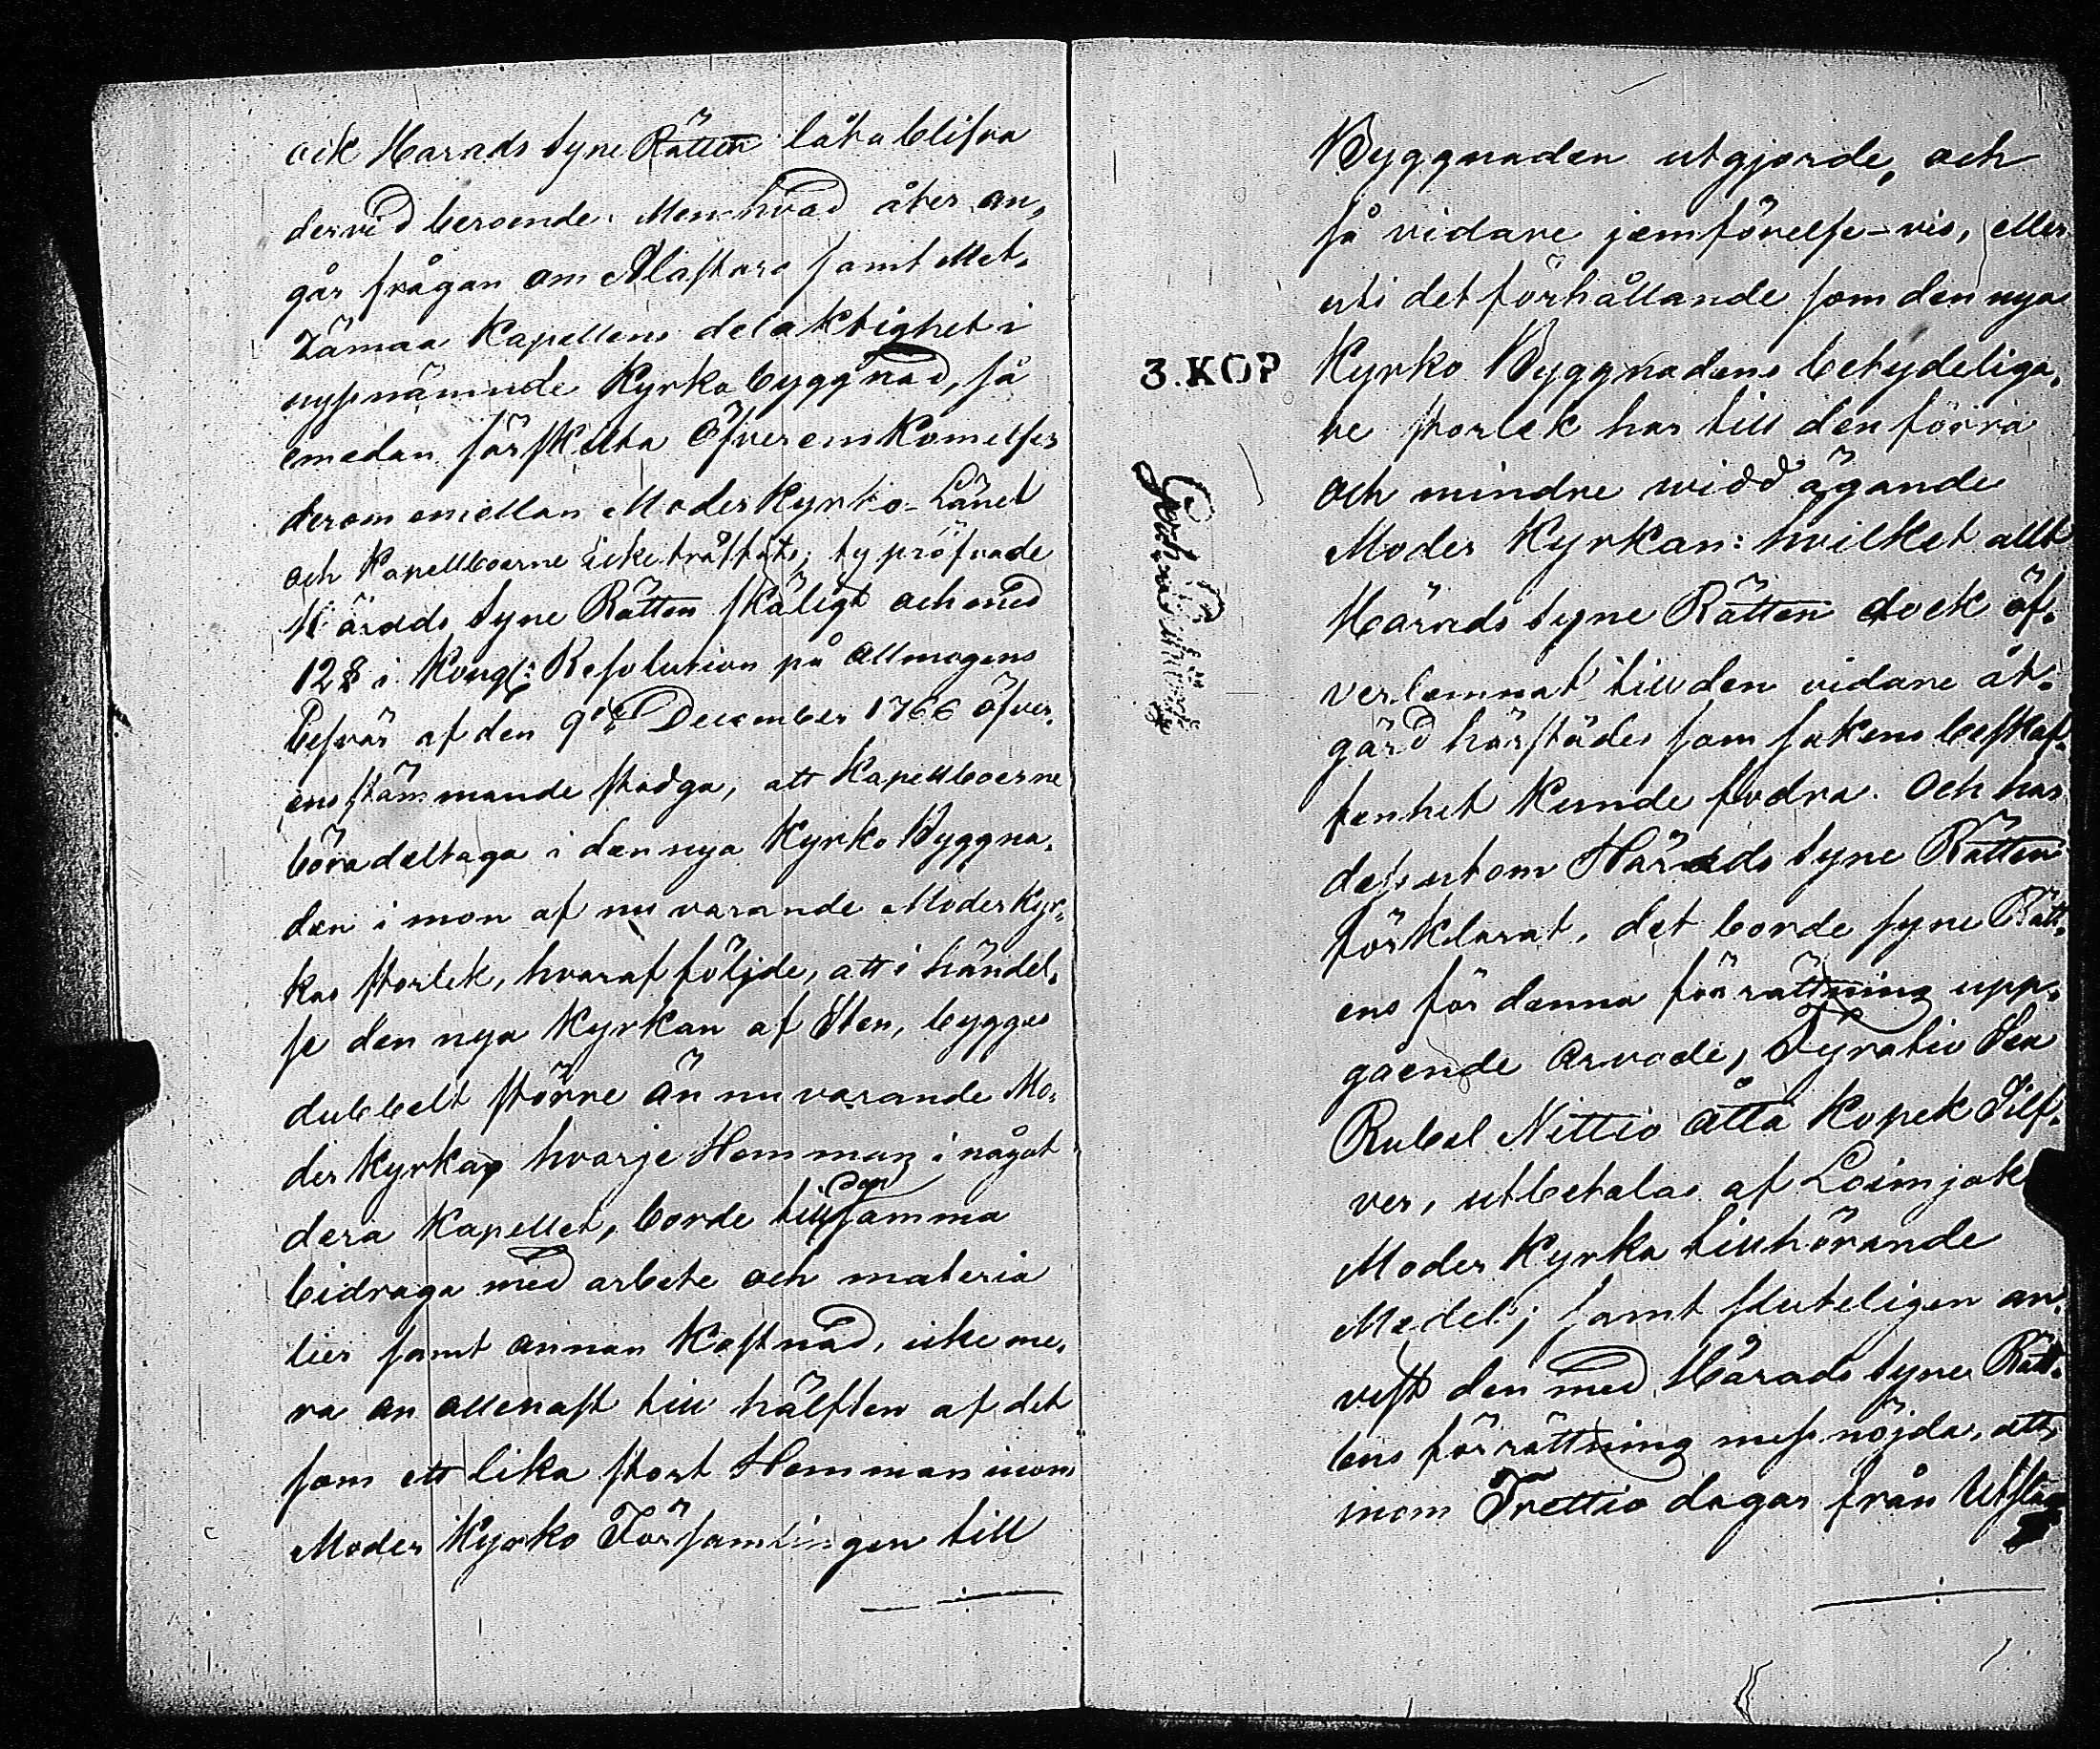 ock Härads Syne Rätten låta blifva
dervid beroende. Men hvad åter an„
går frågan om Alastaro samt Met„
zämaa Kapellens delaktighet i
nyssnämnde Kyrko byggnad, så
emedan särskilta Öfverenskomelser
derom emellan Moder Kyrko-Länet
och Kapellboerne icke träffats; ty pröfvade
Härads Syne Rätten skäligt och med
12 § i Kongl: Resolution på Allmogens
besvär af den 9de December 1766 öfver„
ens stämmande stadga, att Kapellboerne
böra deltaga i den nya Kyrko Byggna„
den i mon af nu varande Moder Kyr„
kas storlek, hvaraf följde, att i händel„
se den nya Kyrkan af Sten, bygges
dubbelt större än nu varande Mo„
der Kyrka, hvarje Hemman i något„
dera Kapellet, borde till den samma
bidraga med arbete och materia
lier samt annan Kostnad, icke me„
ra än allenast till hälften af det
som ett lika stort Hemman inom
Moder Kyrko Församlingen till
Byggnaden utgjorde, och
så vidare jemförelse-vis, eller
uti det förhållande som den nya
3. KOP Kyrko Byggnadens betydeliga„
re storlek har till den förra
och mindre vidd ägande
Moder Kyrkan: hvilket allt
Härads Syne Rätten dock öf„
verlemnat till den vidare åt„
gärd härstädes som sakens beskaf„
fenhet kunde fodra. Och har
dessutom Härads Syne Rätten
förklarat, det borde Syne Rätt„
ens för denna förrättning upp„
gående arvode, Fyratio Sex
Rubel Nittio åtta Kopek Silf„
ver, utbetalas af Loimjoki
Moder Kyrka tillhörande
Medel; samt sluteligen an„
vist den med Härads Syne Rätt„
ens förrättning missnöjde, att
inom Trettio dagar från Utslag